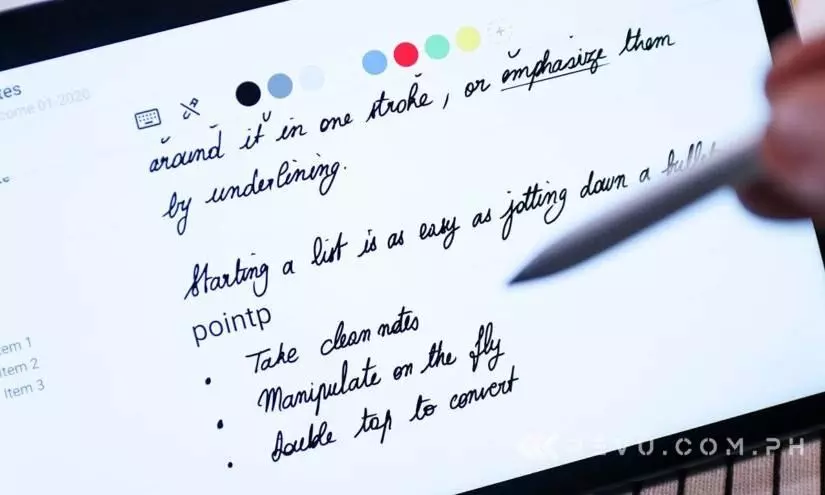 come 01/2020
around it in one stroke, or emphasize them
by underlining.
Starting a list is as easy as jotting down a bullet
pointp
• Take clean notes
• Manipulate on the fly
• Double tap to convert
Item 1
Item 2
Item 3
REVU.COM.PH